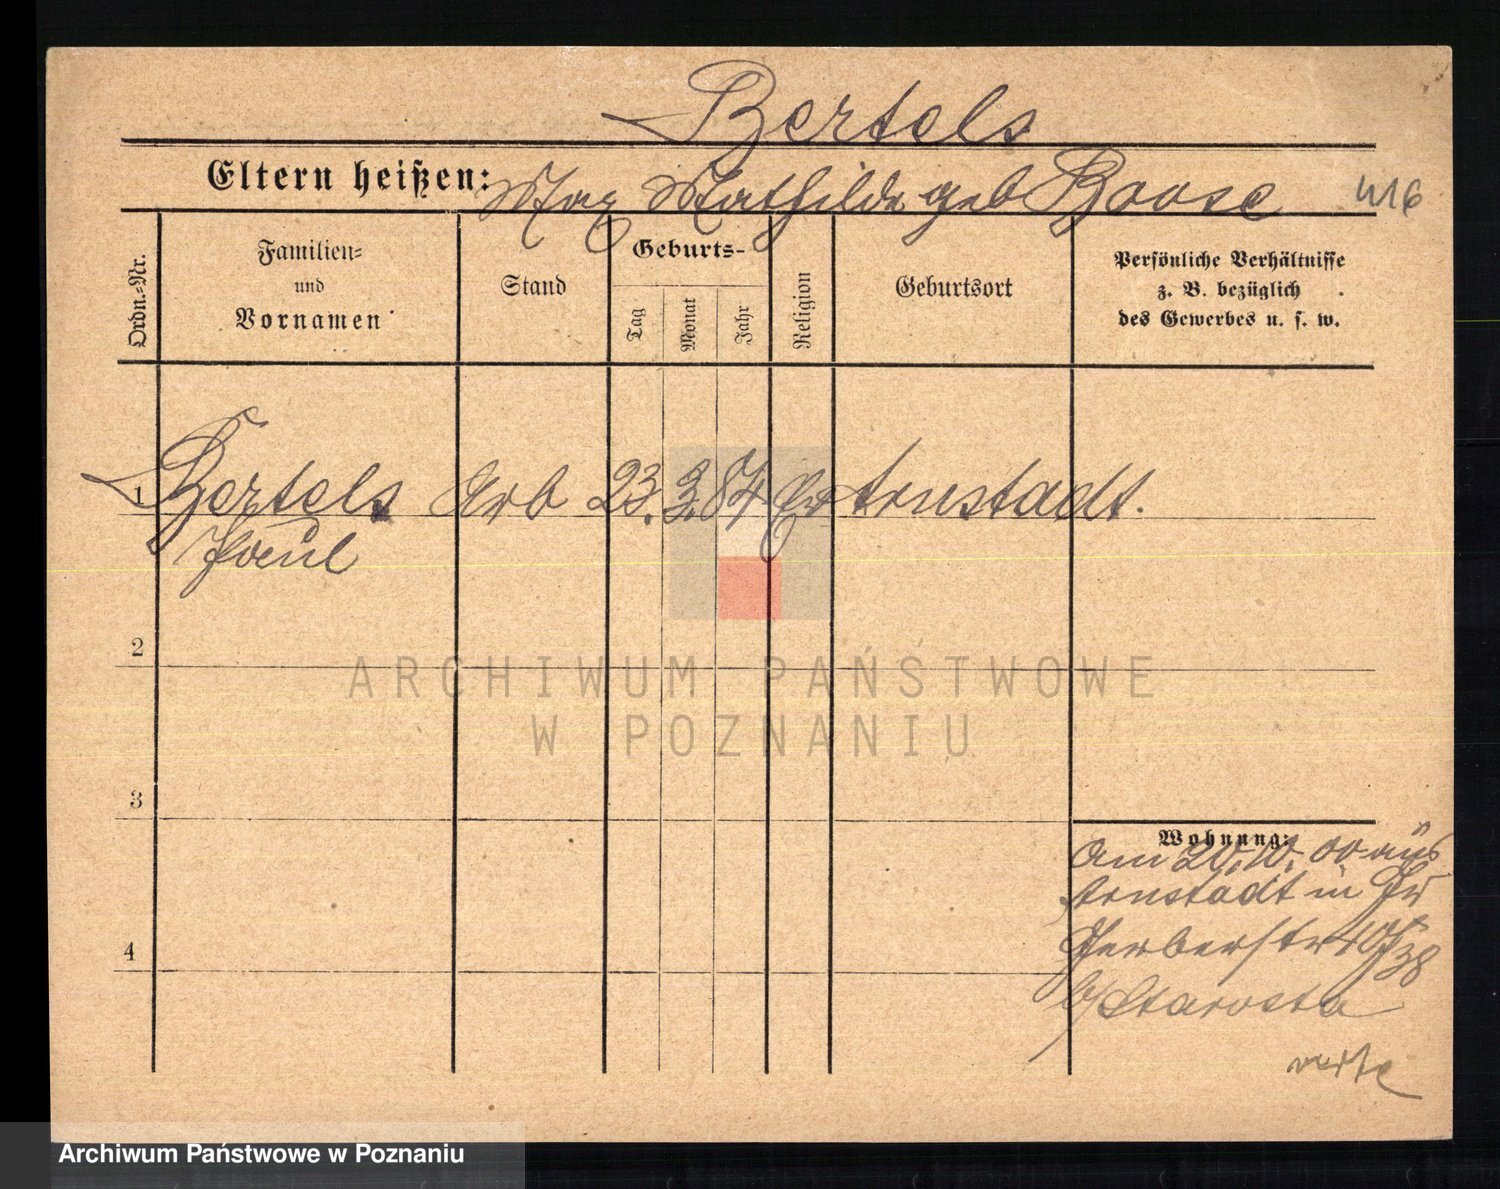 Bertels
Eltern heißen: Max Mathilde geb Boose 416
Ordn.-Nr.
Familien-
und
Vornamen
Stand
Geburts-
Tag
Monat
Jahr
Religion
Geburtsort
Persönliche Verhältnisse
z. B. bezüglich
des Gewerbes u. s. w.
1 Bertels Arb 23. 3. 84 Ev Arnstadt.
Paul
2
ARCHIWUM PAŃSTWOWE
W POZNANIU
3
Wohnung:
am 20. 10. 00 aus
Arnstadt in
Gerberstr 40
b/ Starosta
4
Archiwum Państwowe w Poznaniu